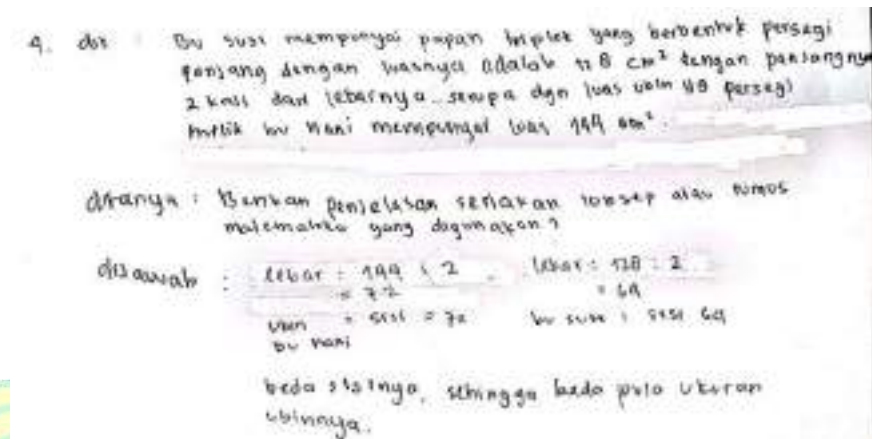 4. dik : Bu susi mempunyai papan triplek yang berbentuk persegi
panjang dengan luasnya adalah 128 cm² dengan panjangnya
2 kali dari lebarnya. serupa dgn luas ubin yg persegi
milik bu Nani mempunyai luas 144 cm².
ditanya : Berikan penjelasan sertakan konsep atau rumus
matematika yang digunakan?
dijawab : lebar : 144 : 2 lebar : 128 : 2
= 72 = 64
ubin = sisi = 72 bu susi : sisi 64
bu nani
beda sisinya, sehingga beda pula ukuran
ubinnya.